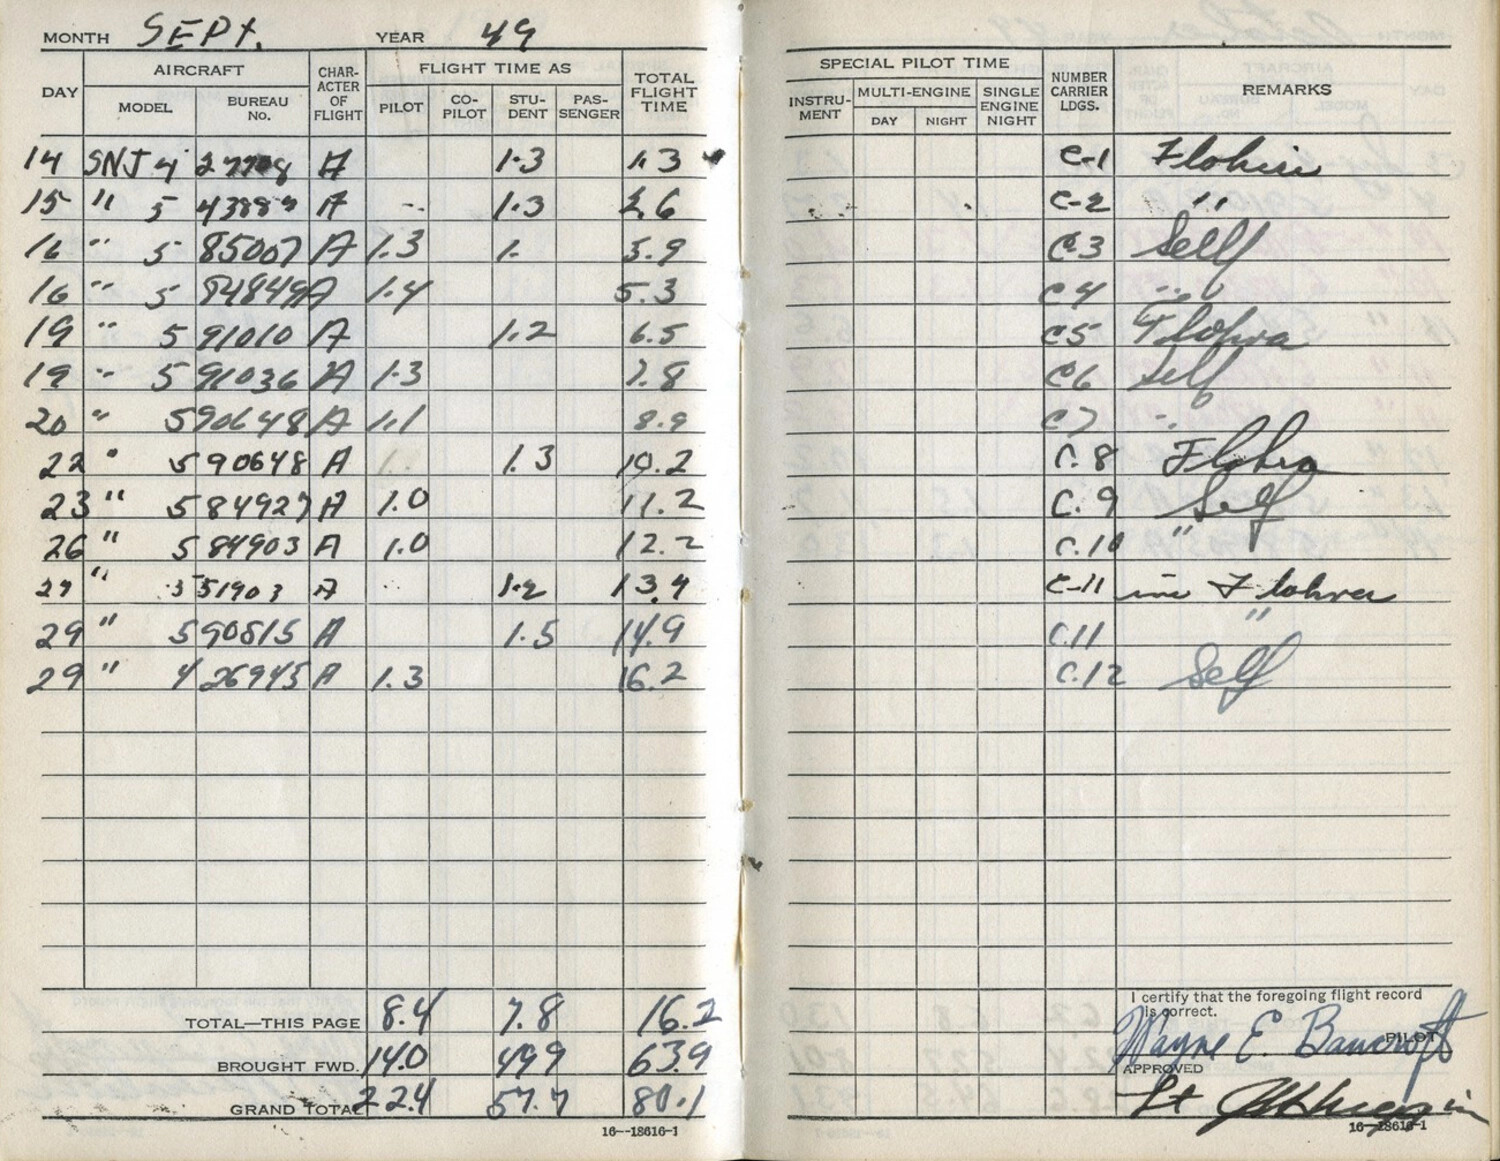 MONTH SEPT. YEAR 49
DAY AIRCRAFT CHARACTER OF FLIGHT FLIGHT TIME AS TOTAL FLIGHT TIME
MODEL BUREAU No. PILOT CO-PILOT STUDENT PASSENGER
14 SNJ 4 A 1.3 1.3
15 " 5 A 1.3 2.6
16 " 5 85007 A 1.3 3.9
16 " 5 84849 A 1.4 5.3
19 " 5 91010 A 1.2 6.5
19 " 5 91036 A 1.3 7.8
20 " 5 90648 A 1.1 8.9
22 " 5 90648 A 1.3 10.2
23 " 5 84927 A 1.0 11.2
26 " 5 84903 A 1.0 12.2
27 " 5 51903 A 1.2 13.4
29 " 5 90515 A 1.5 14.9
29 " 4 26945 A 1.3 16.2
TOTAL—THIS PAGE 8.4 7.8 16.2
BROUGHT FWD. 14.0 49.9 63.9
GRAND TOTAL 22.4 57.7 80.1
16—18616-1
SPECIAL PILOT TIME NUMBER CARRIER LDGS. REMARKS
INSTRUMENT MULTI-ENGINE SINGLE ENGINE NIGHT
DAY NIGHT
C-1
C-2 "
C.3 Self
C4 "
C5
C6 Self
C7 "
C.8
C.9 Self
C.10 "
C-11
C.11 "
C.12 Self
I certify that the foregoing flight record
is correct.
Wayne E. Bancroft PILOT
APPROVED
Lt
16—18616-1